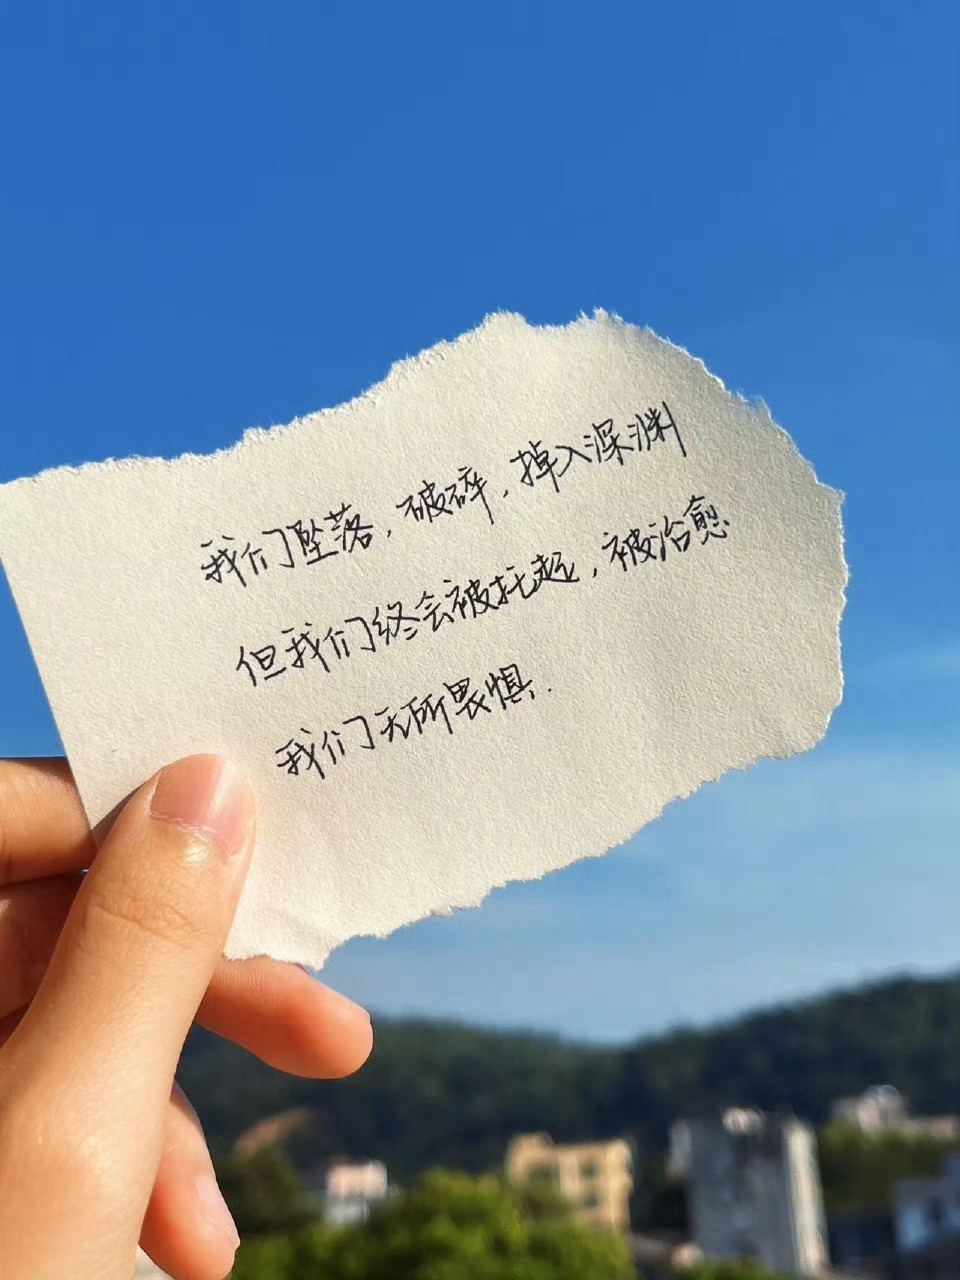 我们坠落，破碎，掉入深渊
但我们终会被托起，被治愈
我们无所畏惧.